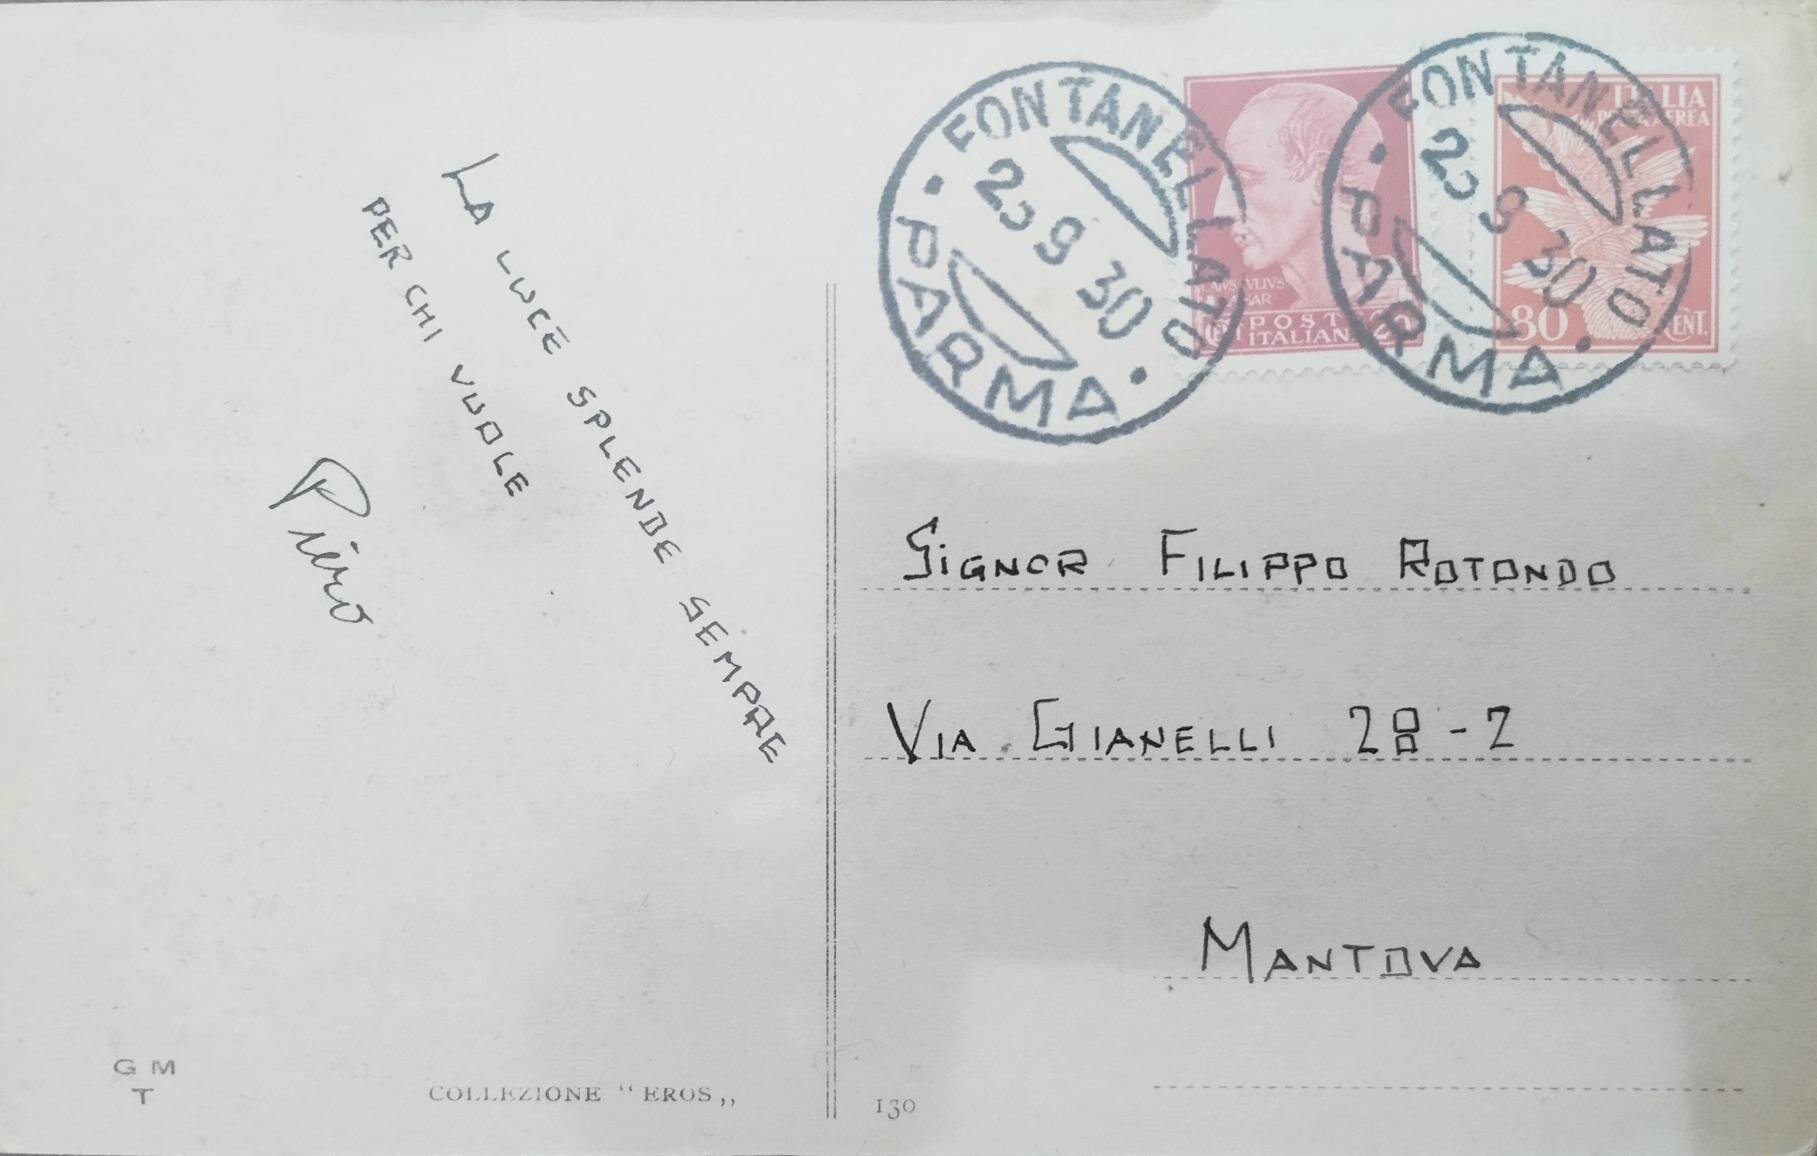 LA LUCE SPLENDE SEMPRE
PER CHI VUOLE
Piero
G M
T
COLLEZIONE " EROS „
FONTANELLATO
9 30
• PARMA •
POSTE
ITALIANE 20
FONTANELLATO
9 30
• PARMA •
ITALIA
POSTA AEREA
80 CENT.
SIGNOR FILIPPO ROTONDO
VIA GIANELLI 28-2
MANTOVA
130